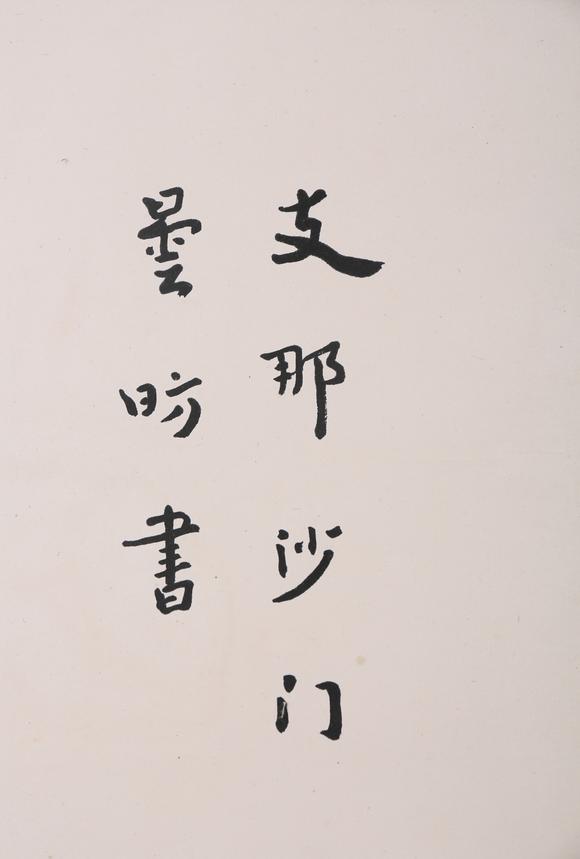 支那沙门
曇昉書